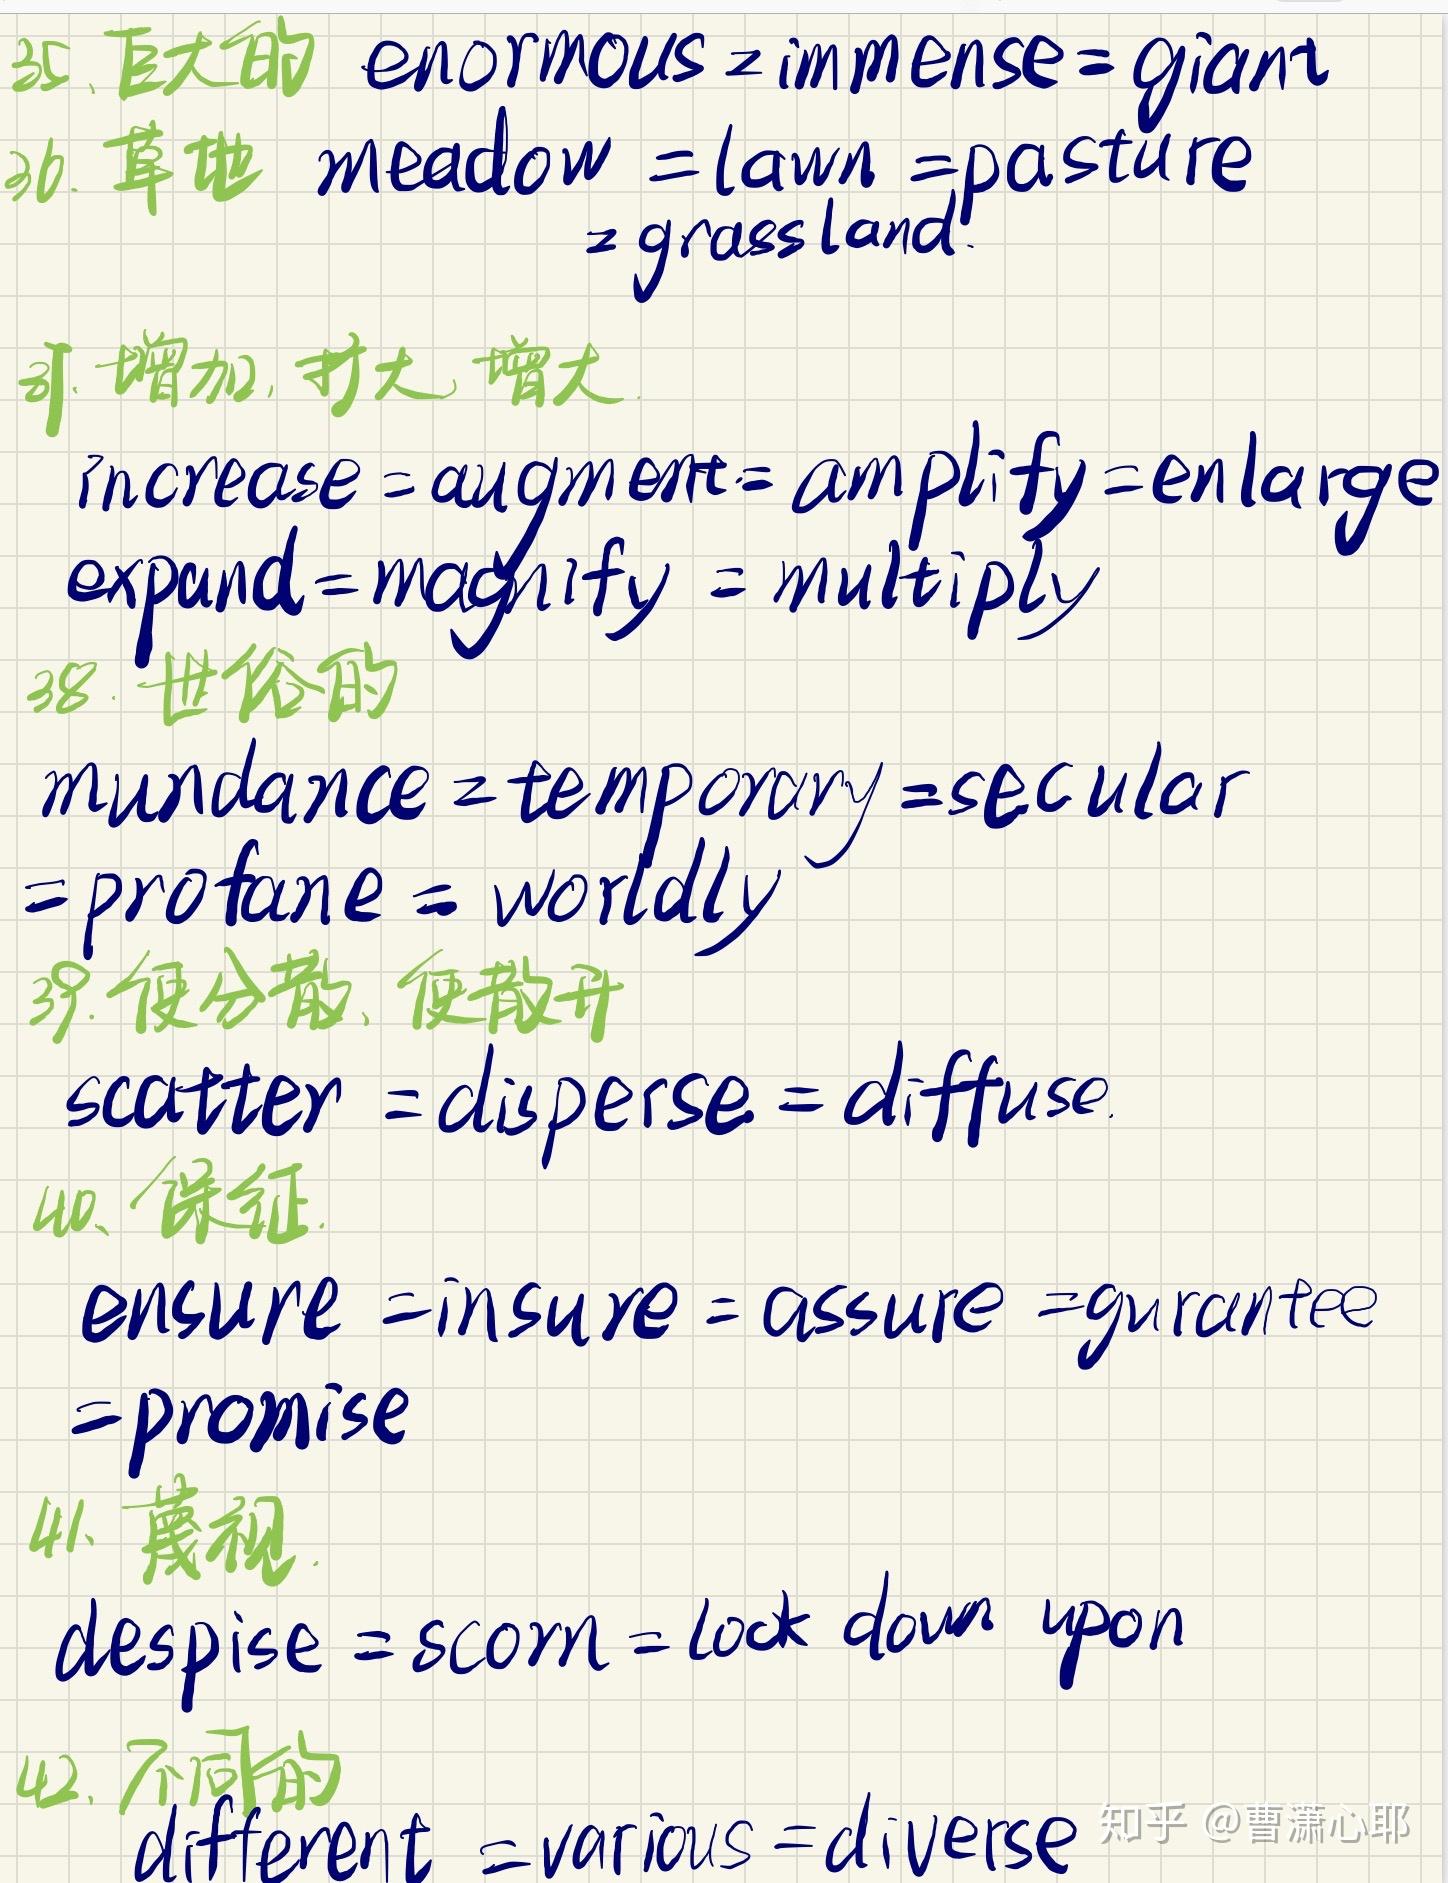 35、巨大的 enormous = immense = giant
36. 草地 meadow = lawn = pasture
= grassland.
37. 增加, 扩大, 增大.
increase = augment = amplify = enlarge
expand = magnify = multiply
38. 世俗的
mundance = temporary = secular
= profane = worldly
39. 使分散、使散开
scatter = disperse = diffuse.
40、保证.
ensure = insure = assure = gurantee
= promise
41、蔑视.
despise = scorn = look down upon
42、不同的
different = various = diverse
知乎 @曹潇心耶